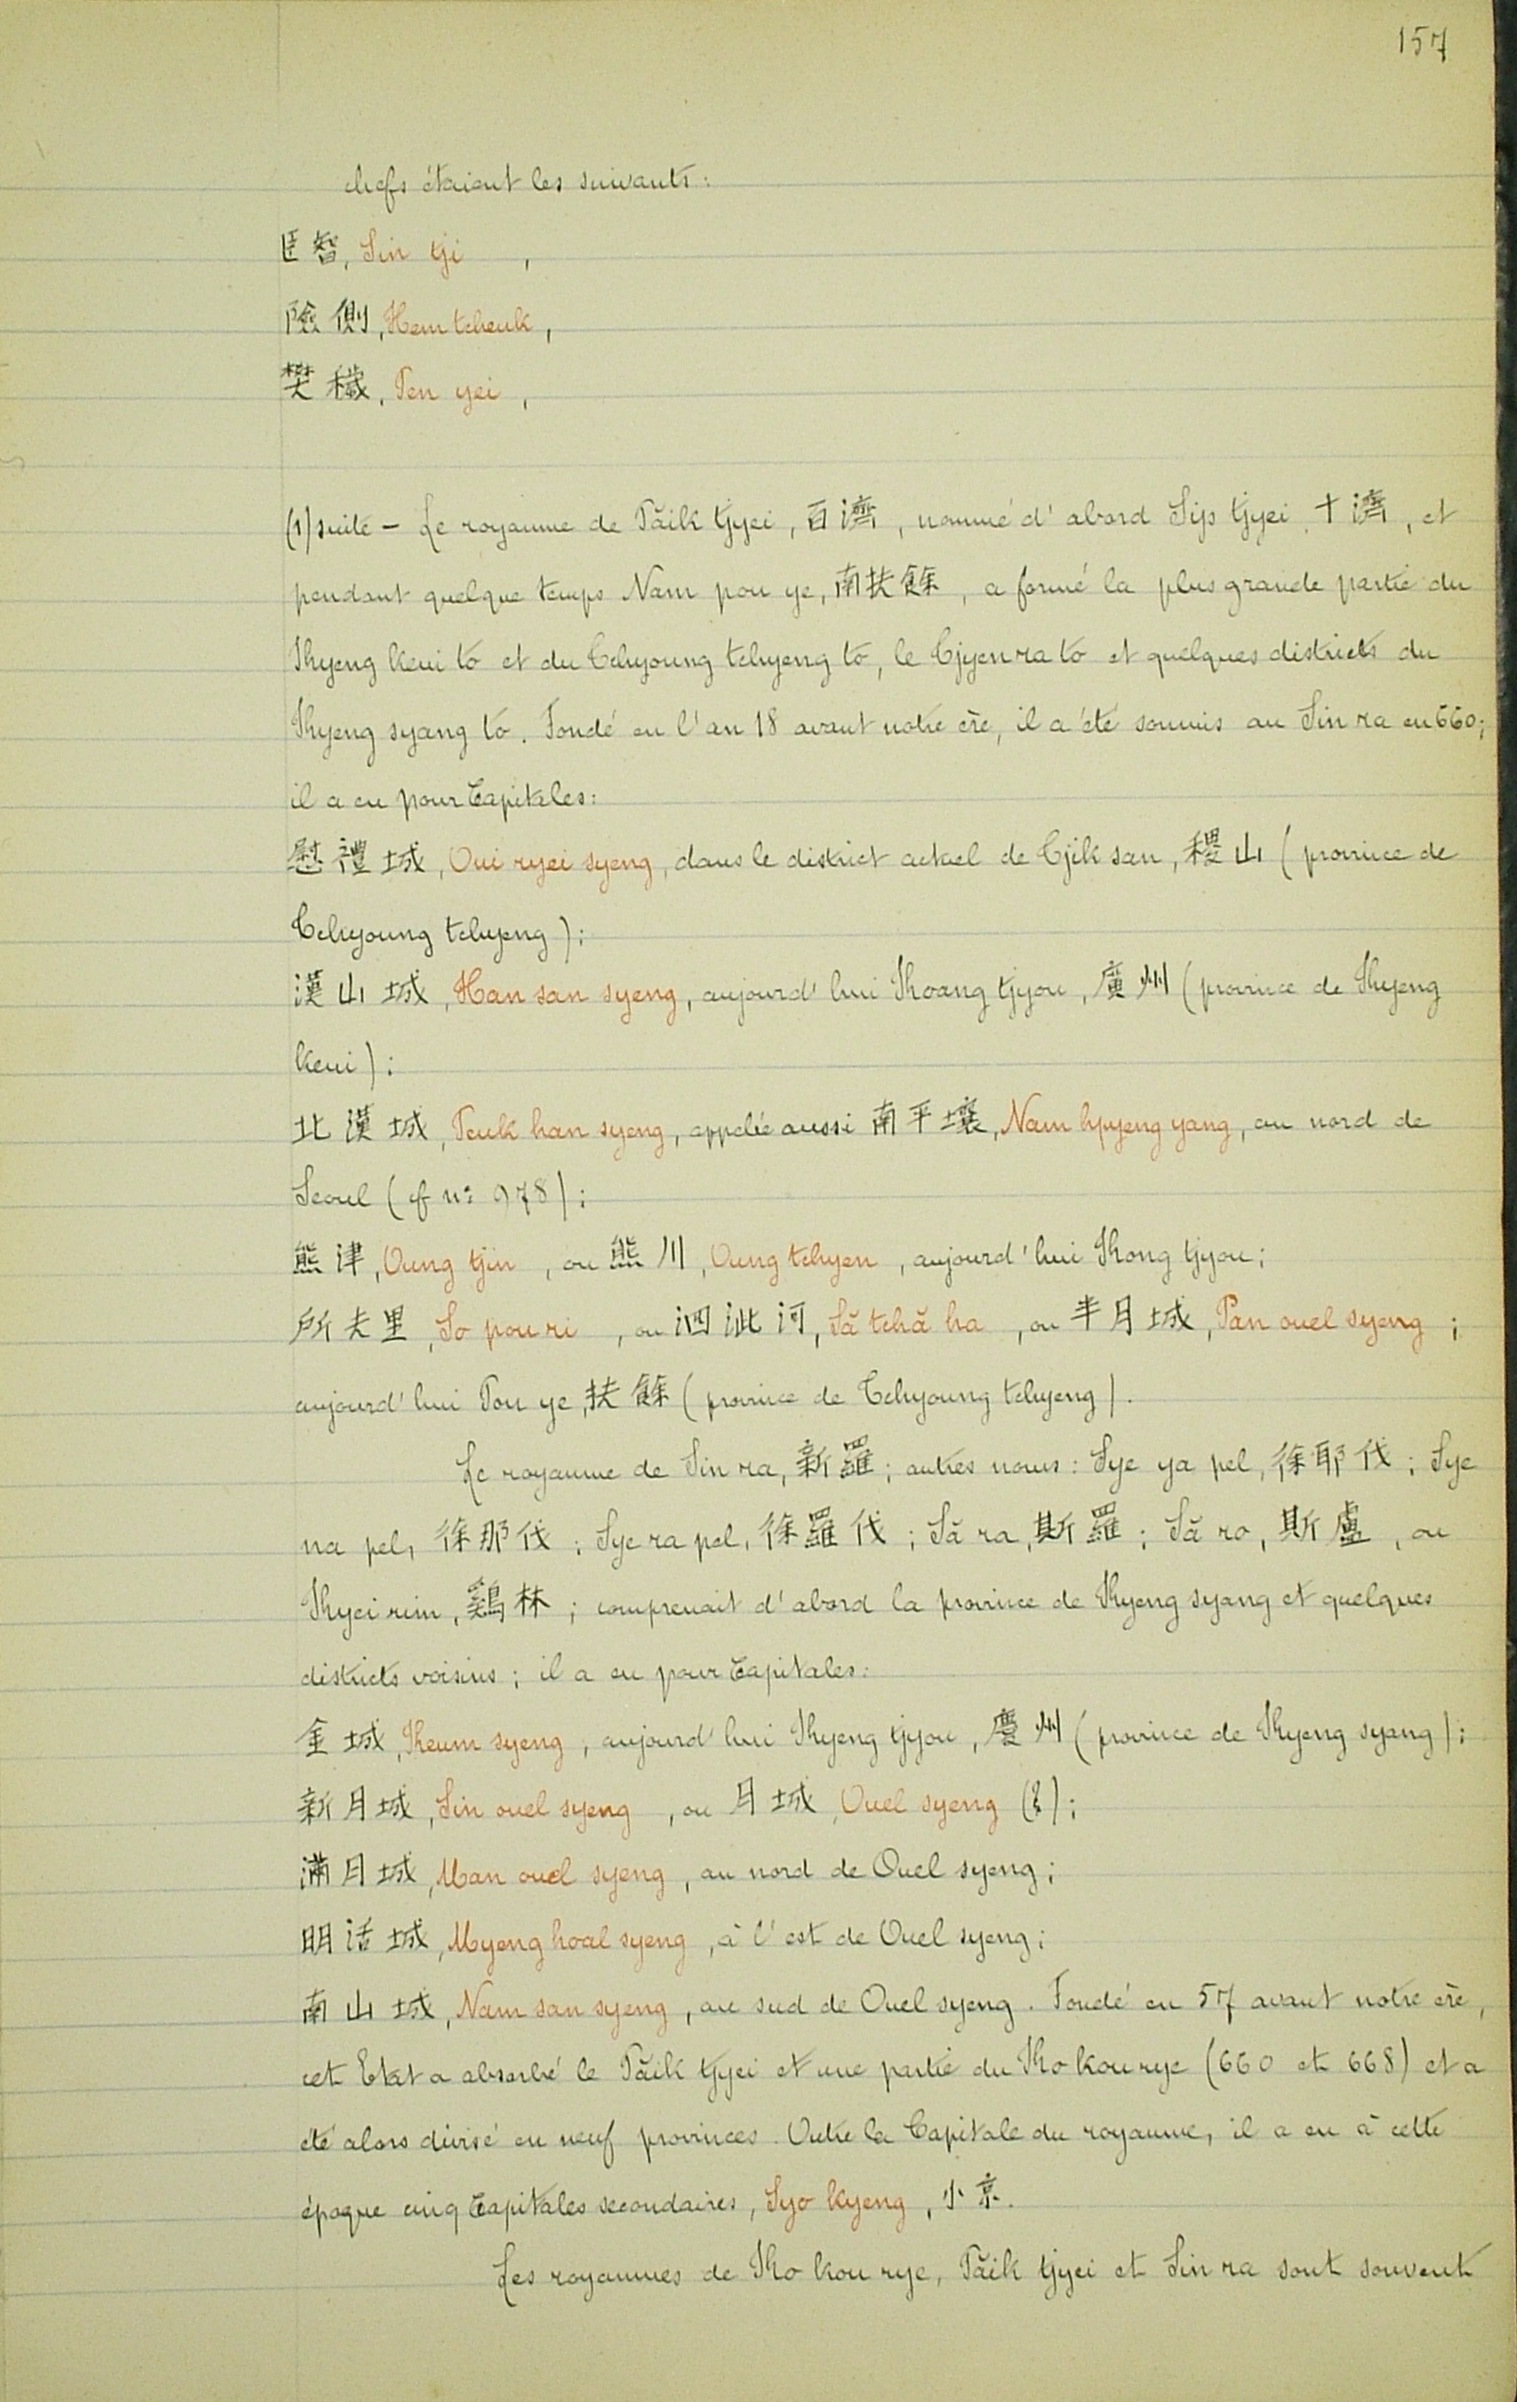 157
chefs étaient les suivants:
臣智, Sin tji ,
險側, Hem tcheuk,
樊穢, Pen yei ,
(1) suite – Le royaume de Păik tjyei, 百濟, nommé d'abord Sip tjyei, 十濟, et
pendant quelque temps Nam pou ye, 南扶餘, a formé la plus grande partie du
Kyeng keui to et du Tchyoung tchyeng to, le Tjyen ra to et quelques districts du
Kyeng syang to. Fondé en l'an 18 avant notre ère, il a été soumis au Sin ra en 660;
il a eu pour Capitales:
慰禮城, Oui ryei syeng, dans le district actuel de Tjik san, 稷山 (province de
Tchyoung tchyeng);
漢山城, Han san syeng, aujourd'hui Koang tjyou, 廣州 (province de Kyeng
keui);
北漢城, Peuk han syeng, appelée aussi 南平壤, Nam hpyeng yang, au nord de
Seoul (cf nº 978);
熊津, Oung tjin , ou 熊川, Oung tchyen , aujourd'hui Kong tjyou;
所夫里, So pou ri , ou 泗沘河, Să tchă ha , ou 半月城, Pan ouel syeng ;
aujourd'hui Pou ye, 扶餘 (province de Tchyoung tchyeng).
Le royaume de Sin ra, 新羅; autres noms: Sye ya pel, 徐耶伐; Sye
na pel, 徐那伐; Sye ra pel, 徐羅伐; Să ra, 斯羅; Să ro, 斯盧, ou
Kyei rim, 鷄林; comprenait d'abord la province de Kyeng syang et quelques
districts voisins; il a eu pour Capitales:
金城, Keum syeng, aujourd'hui Kyeng tjyou, 慶州 (province de Kyeng syang);
新月城, Sin ouel syeng , ou 月城, Ouel syeng (?);
滿月城, Man ouel syeng , au nord de Ouel syeng;
明活城, Myeng hoal syeng , à l'est de Ouel syeng;
南山城, Nam san syeng , au sud de Ouel syeng. Fondé en 57 avant notre ère,
cet Etat a absorbé le Păik tjyei et une partie du Ko kou rye (660 et 668) et a
été alors divisé en neuf provinces. Outre la Capitale du royaume, il a eu à cette
époque cinq Capitales secondaires, Syo kyeng, 小京.
Les royaumes de Ko kou rye, Păik tjyei et Sin ra sont souvent